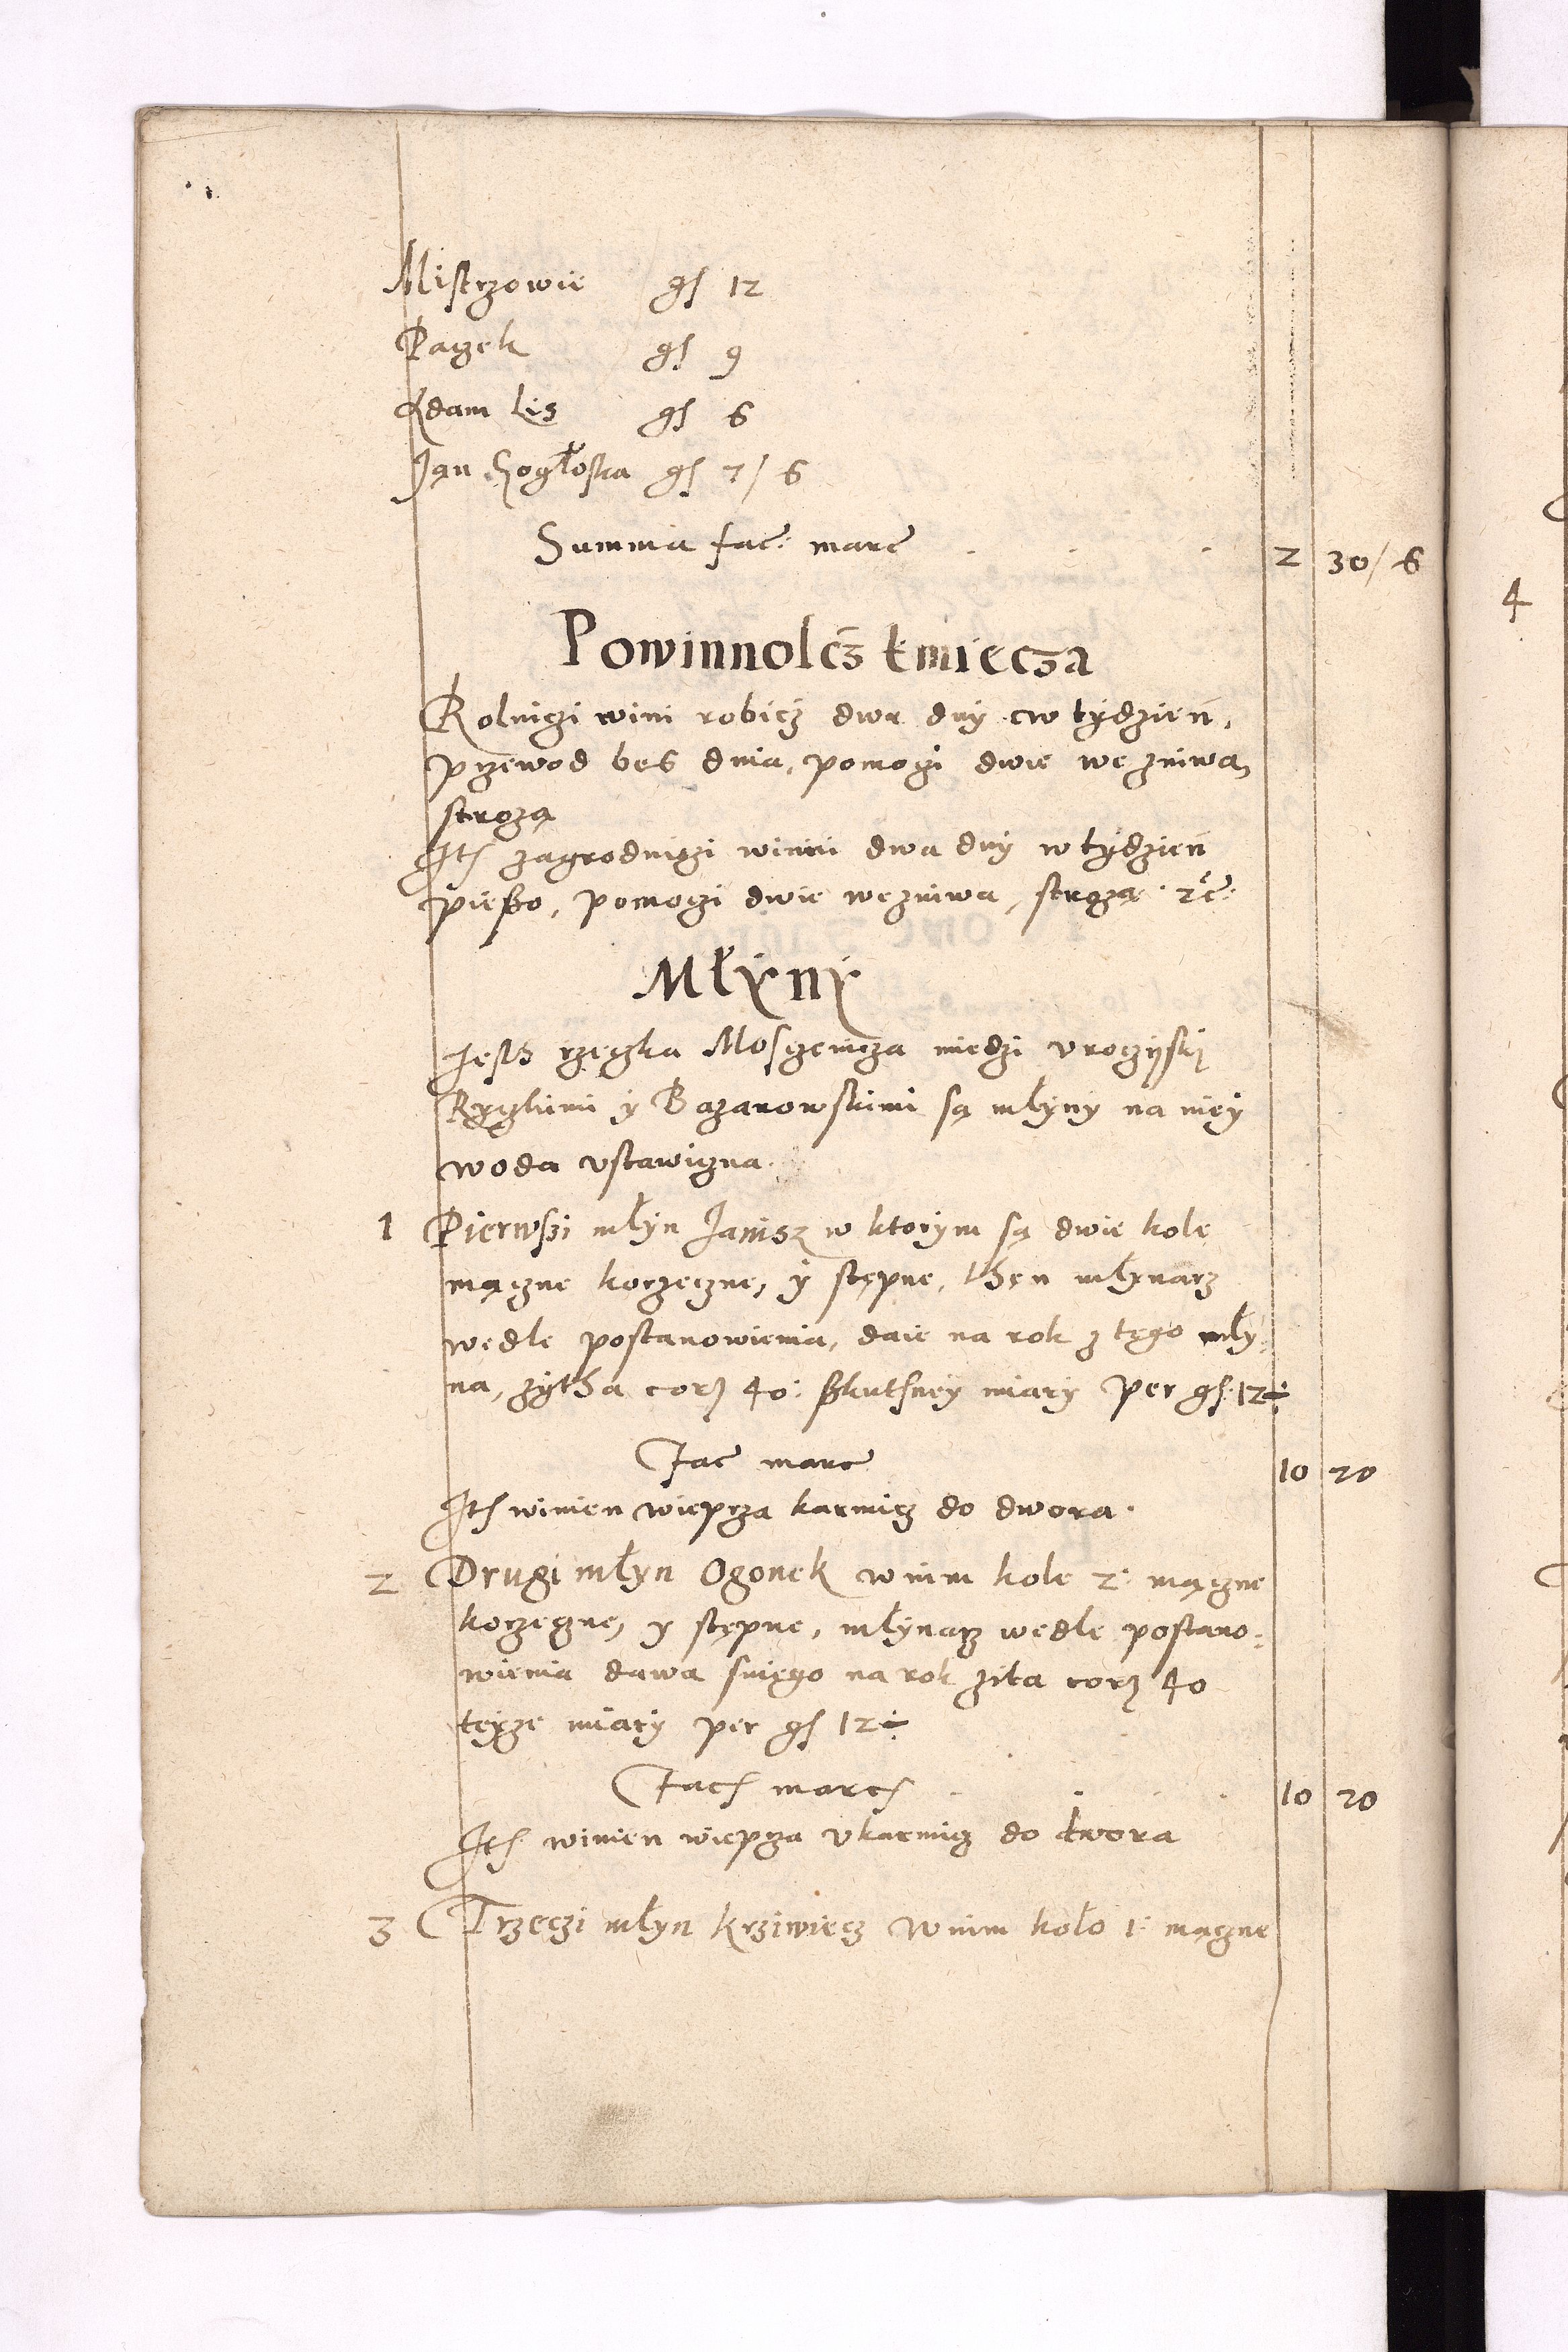 Mistrzowie gs 12
Paczek gs 9
Adam Lis gs 6
Jan gs 7/6
Summa fac: marc 2 30/6
Powinnoscz kmiecza
Rolniczi wini robicz dwa dny w tydzień,
przewod bes dnia, pomoczi dwie we zniwa,
stroza
Its zagrodniczi winni dwa dny w tydzień
pießo, pomoczi dwie we zniwa, stroza etc:
Młyny
Jesth rzeczka Mosczenicza miedzi vroczyski
Bazanowskimi są młyny na niey
woda vstawiczna.
1 Pierwßi młyn Janisz w ktorym są dwie kole
mączne korzeczne, y stępne, then młynarz
wedle postanowienia, daie na rok z tego mły:
na, zytha cor 40: ßkutsney miary per gs 12÷
Fac marc 10 20
Its winien wieprza karmicz do dwora.
2 Drugi młyn Ogonek w nim kole 2: mączne
korzeczne, y stępne, młynarz wedle postano:
wienia dawa snięgo na rok zita cor 40
teyze miary per gs 12÷
Fac marc 10 20
Its winien wieprza vkarmicz do dwora
3 Trzeczi młyn krziwiecz w nim koło 1: mączne
4